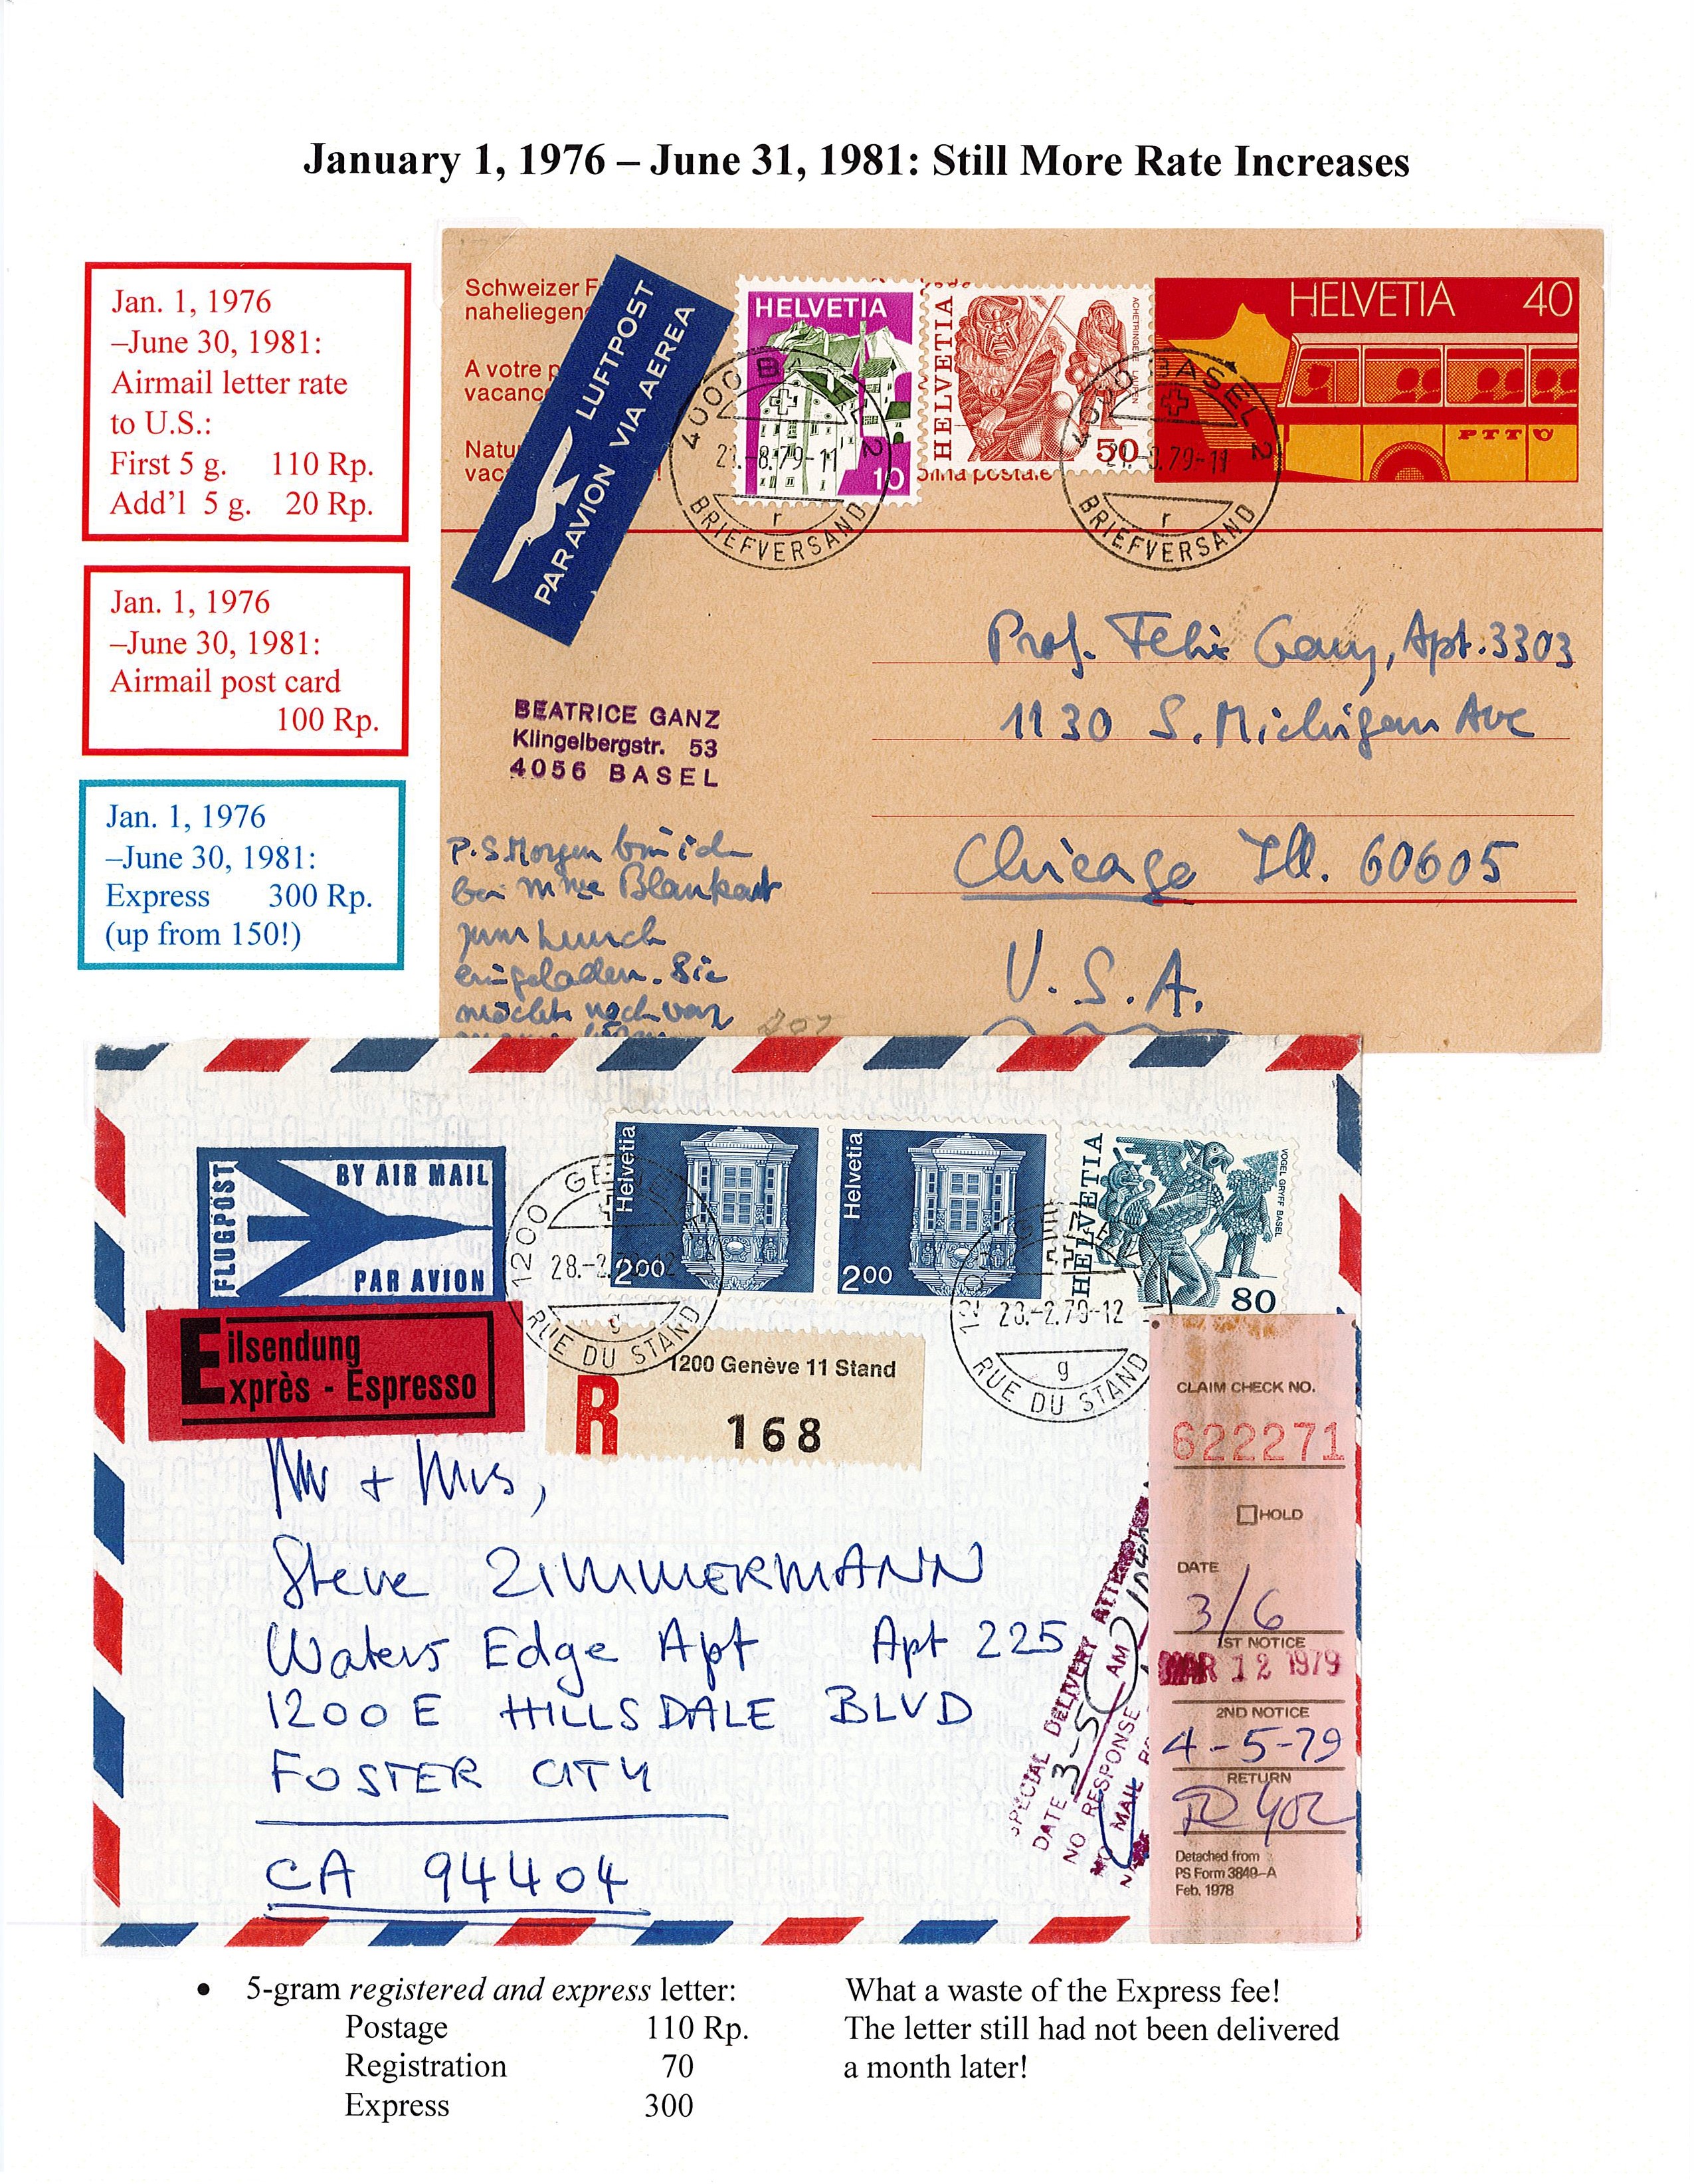 January 1, 1976 – June 31, 1981: Still More Rate Increases
Jan. 1, 1976
–June 30, 1981:
Airmail letter rate
to U.S.:
First 5 g. 110 Rp.
Add'l 5 g. 20 Rp.
Jan. 1, 1976
–June 30, 1981:
Airmail post card
100 Rp.
Jan. 1, 1976
–June 30, 1981:
Express 300 Rp.
(up from 150!)
Schweizer F
naheliegen
A votre p
vacanc
Natu
vac !
LUFTPOST
PAR AVION VIA AEREA
HELVETIA
10
HELVETIA
50
olina postale
HELVETIA 40
PTT
4000 BASEL 2
21.-8.79-11
r
BRIEFVERSAND
BASEL 2
.79-11
r
BRIEFVERSAND
Prof. Felix Ganz, Apt. 3303
1130 S. Michigan Ave
Chicago Ill. 60605
U.S.A.
BEATRICE GANZ
Klingelbergstr. 53
4056 BASEL
P.S. Morgen bin ich
bei Mme Blankart
zum Lunch
eingeladen. Sie
möchte noch von
207
FLUGPOST
BY AIR MAIL
PAR AVION
Eilsendung
Exprès - Espresso
Helvetia
200
Helvetia
200
HELVETIA
VOGEL GRYFF BASEL
80
1200 GE
28.-2.79-12
g
RUE DU STAND
28.-2.79-12
g
RUE DU STAND
R
1200 Genève 11 Stand
168
Mr + Mrs,
Steve ZIMMERMANN
Waters Edge Apt Apt 225
1200 E HILLSDALE BLVD
FOSTER CITY
CA 94404
SPECIAL DELIVERY
DATE 3-5 AM
NO RESPONSE
MAIL
CLAIM CHECK NO.
622271
HOLD
DATE
3/6
1ST NOTICE
MAR 12 1979
2ND NOTICE
4-5-79
RETURN
Detached from
PS Form 3849-A
Feb. 1978
• 5-gram registered and express letter:
Postage 110 Rp.
Registration 70
Express 300
What a waste of the Express fee!
The letter still had not been delivered
a month later!